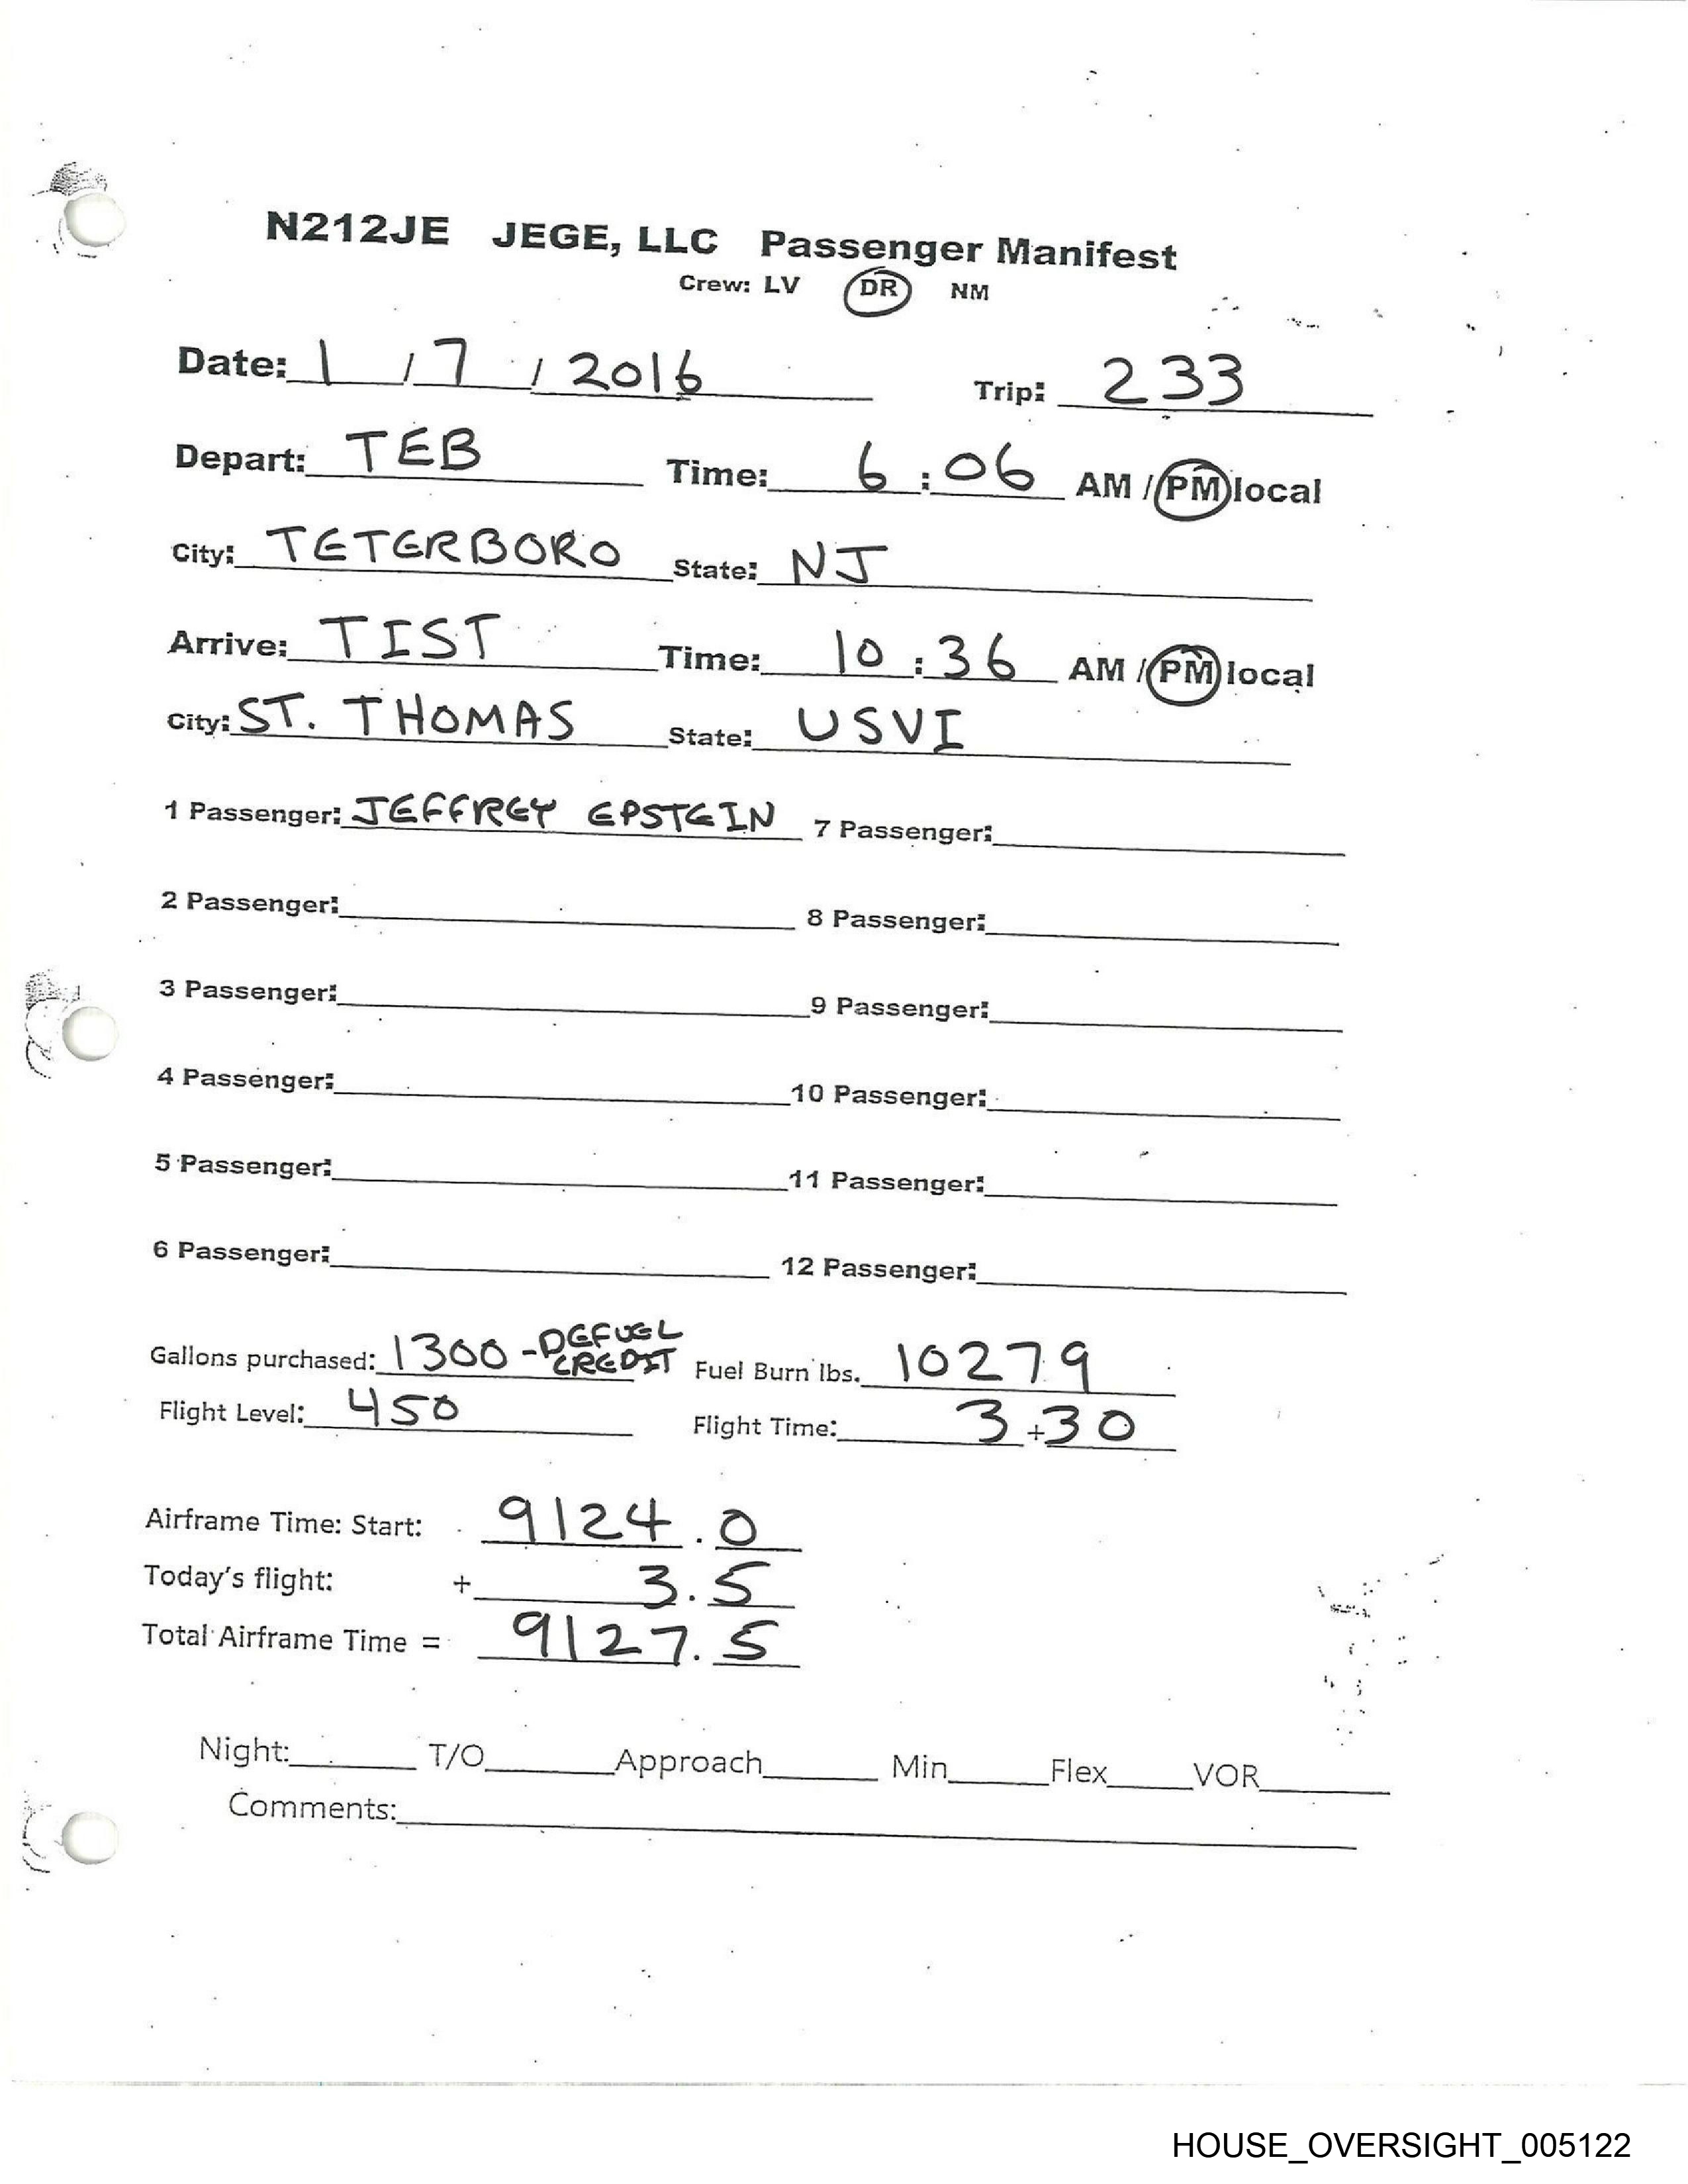 N212JE JEGE, LLC Passenger Manifest
Crew: LV DR NM
Date: 1 / 7 / 2016 Trip: 233
Depart: TEB Time: 6:06 AM / PM local
City: TETERBORO State: NJ
Arrive: TIST Time: 10:36 AM / PM local
City: ST. THOMAS State: USVI
1 Passenger: JEFFREY EPSTEIN 7 Passenger:
2 Passenger: 8 Passenger:
3 Passenger: 9 Passenger:
4 Passenger: 10 Passenger:
5 Passenger: 11 Passenger:
6 Passenger: 12 Passenger:
Gallons purchased: 1300 - DEFUEL CREDIT Fuel Burn lbs. 10279
Flight Level: 450 Flight Time: 3 + 30
Airframe Time: Start: 9124.0
Today's flight: + 3.5
Total Airframe Time = 9127.5
Night: T/O Approach Min Flex VOR
Comments:
HOUSE_OVERSIGHT_005122